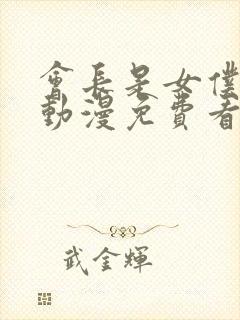 會長是女僕
動漫免費看
武金輝